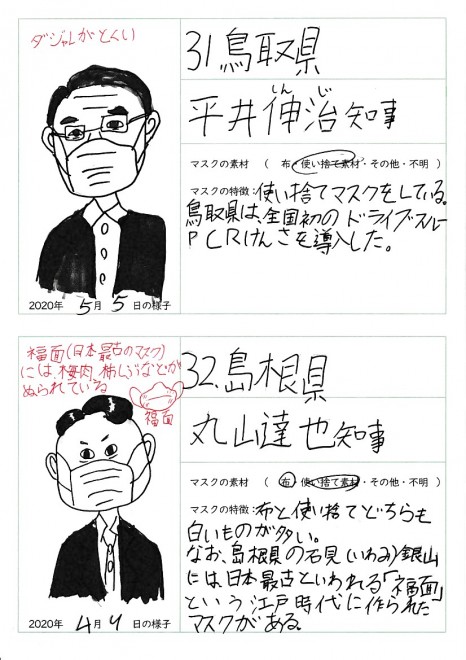 ダジャレがとくい
31 鳥取県
しん じ
平井伸治知事
マスクの素材 （ 布・使い捨て素材・その他・不明 ）
マスクの特徴：使い捨てマスクをしている。
鳥取県は、全国初のドライブ・スルー
PCRけんさを導入した。
2020年 5月 5日の様子
福面(日本最古のマスク)
には、梅肉、柿しぶなどが
ぬられている
福面
32. 島根県
丸山達也知事
マスクの素材 （ 布・使い捨て素材・その他・不明 ）
マスクの特徴：布と使い捨てどちらも
白いものが多い。
なお、島根県の石見(いわみ)銀山
には、日本最古といわれる「福面」
という江戸時代に作られた
マスクがある。
2020年 4月 4日の様子